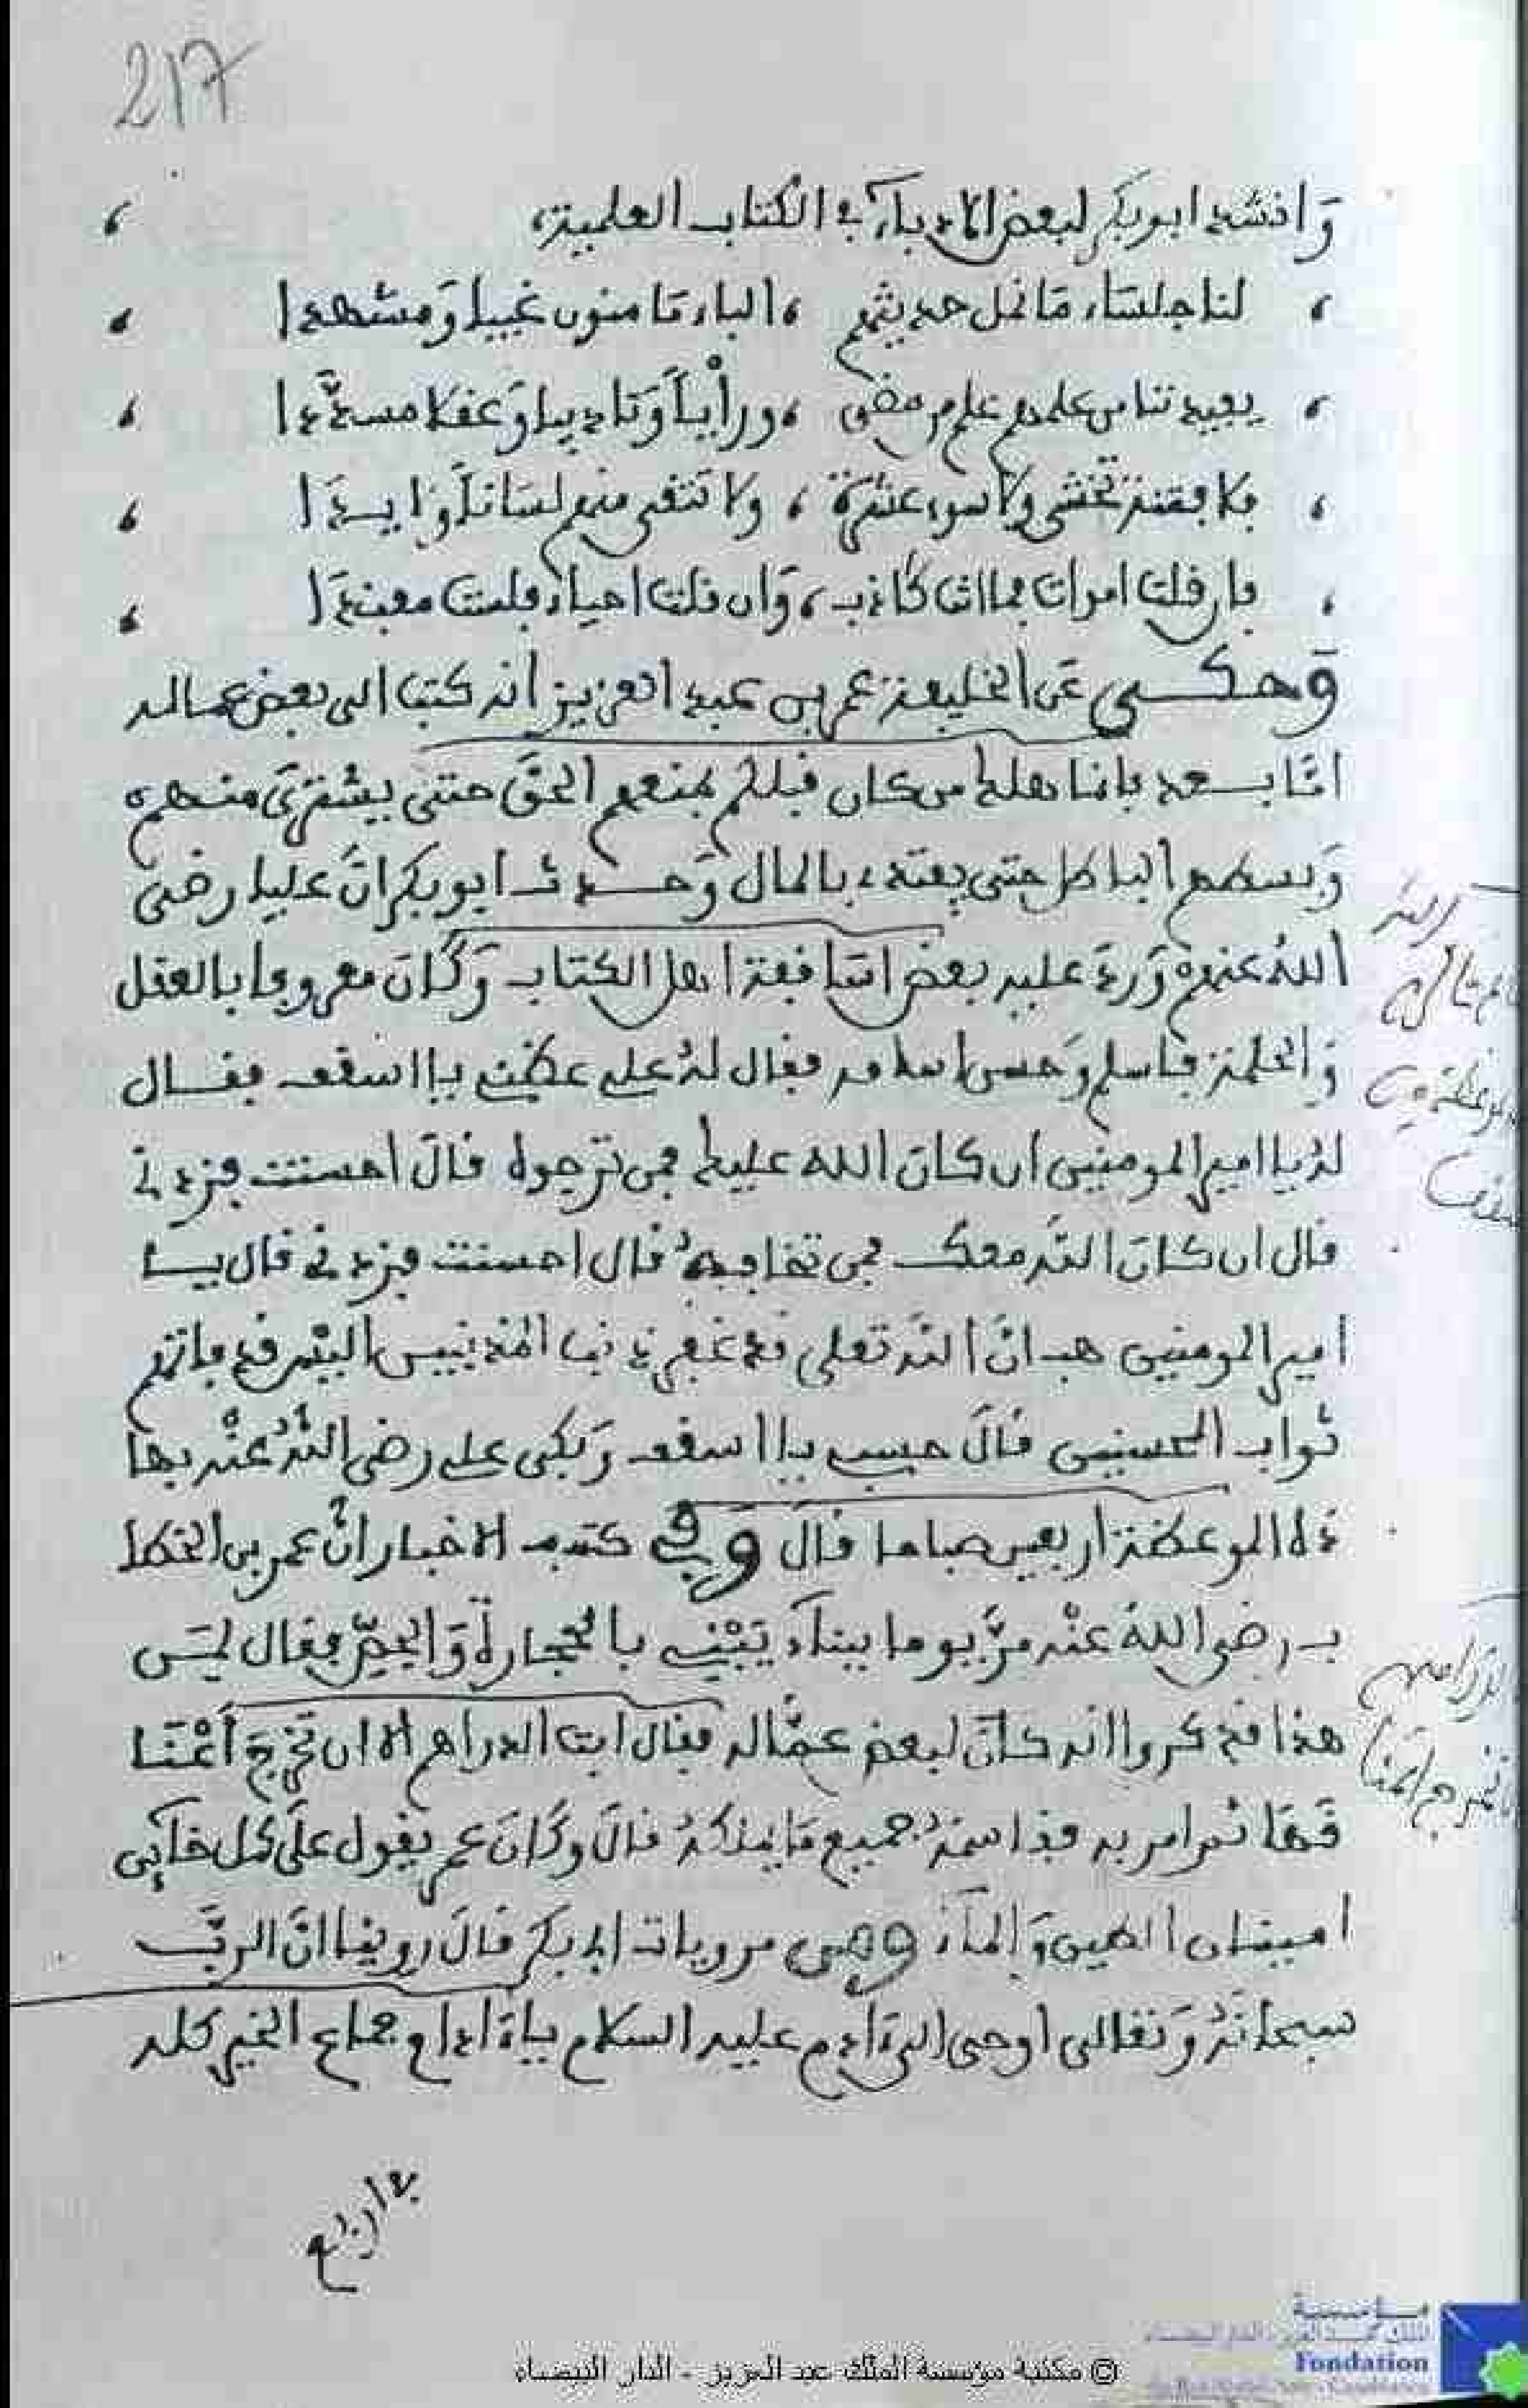 217
وَانشد ابو بكر لبعض الادباء في الكتاب العلمية،
، لنا جلساء مَا نمل حديثهم ، البا، مَامنون غيبا وَمشهدا ،
، يفيدننا من علمهم علم من مضى ، ورأْياً وَتاديبا وَعقلا مسدَّدا ،
، فلا فتنة تخشى ولا سوء عشرة ، ولا نتقى منهم لسَانا وَلا يدَا ،
، فان قلت اموات فما انت كاذب ، وَان قلت احياء فلست مفندَا ،
وَحكي عَن الخليفة عمر بن عبد العزيز أنه كتب الى بعض عماله
امَّا بعد فانما هلك من كان قبلكم بمنعهم الحقَّ حتى يشترَى منهم
وَبسطهم الباطل حتى يفتدى بالمال وَحدث ابو بكر انَّ عليا رضي
اللهُ عنه وَردَ عليه بعض اسَاقفة اهل الكتاب وَكَانَ معروفا بالعقل
وَالحلم فاسلم وَحسن اسلامه فقال لهُ علي عظني يا اسقف فقال
لهُ يا امير المومنين ان كانَ الله عليك فمن ترجوا قالَ احسنت فزدني
قال ان كانَ اللهُ معك فمن تخافهُ قال احسنت فزدني قال يا
امير المومنين هب انَّ اللهَ تعلى قد غفر ذنب المذنبين اليس قد فاتهم
ثواب المحسنين قالَ حسبي يا اسقف وَبكى علي رضي اللهُ عنْه بها
ذه الموعظة اربعين صباحا قالَ وَفي كتب الاخبار انَّ عمر بن الخطا
ب رضي اللهُ عنْه مرَّ يوما ببناءٍ يَبْنِى بالحجارة وَالجصّ فقال لمَن
هذا فذكروا انه كانَ لبعض عمَّاله فقال ابت الدراهم الا ان تخرجَ اعْنَا
قَهَا ثم امر به فقاسمهُ جميع مَا يملكهُ قالَ وكَانَ عمر يقول علَى كل خاين
امينان الطين وَالماء وَمن مرويات ابي بكر قالَ روينا انَّ الربَّ
سبحانَهُ وَتعالى اوحى الى ءادم عليه السلام ياءادم جماع الخير كله
© مكتبة مؤسسة الملك عبد العزيز - الدار البيضاء
Fondation